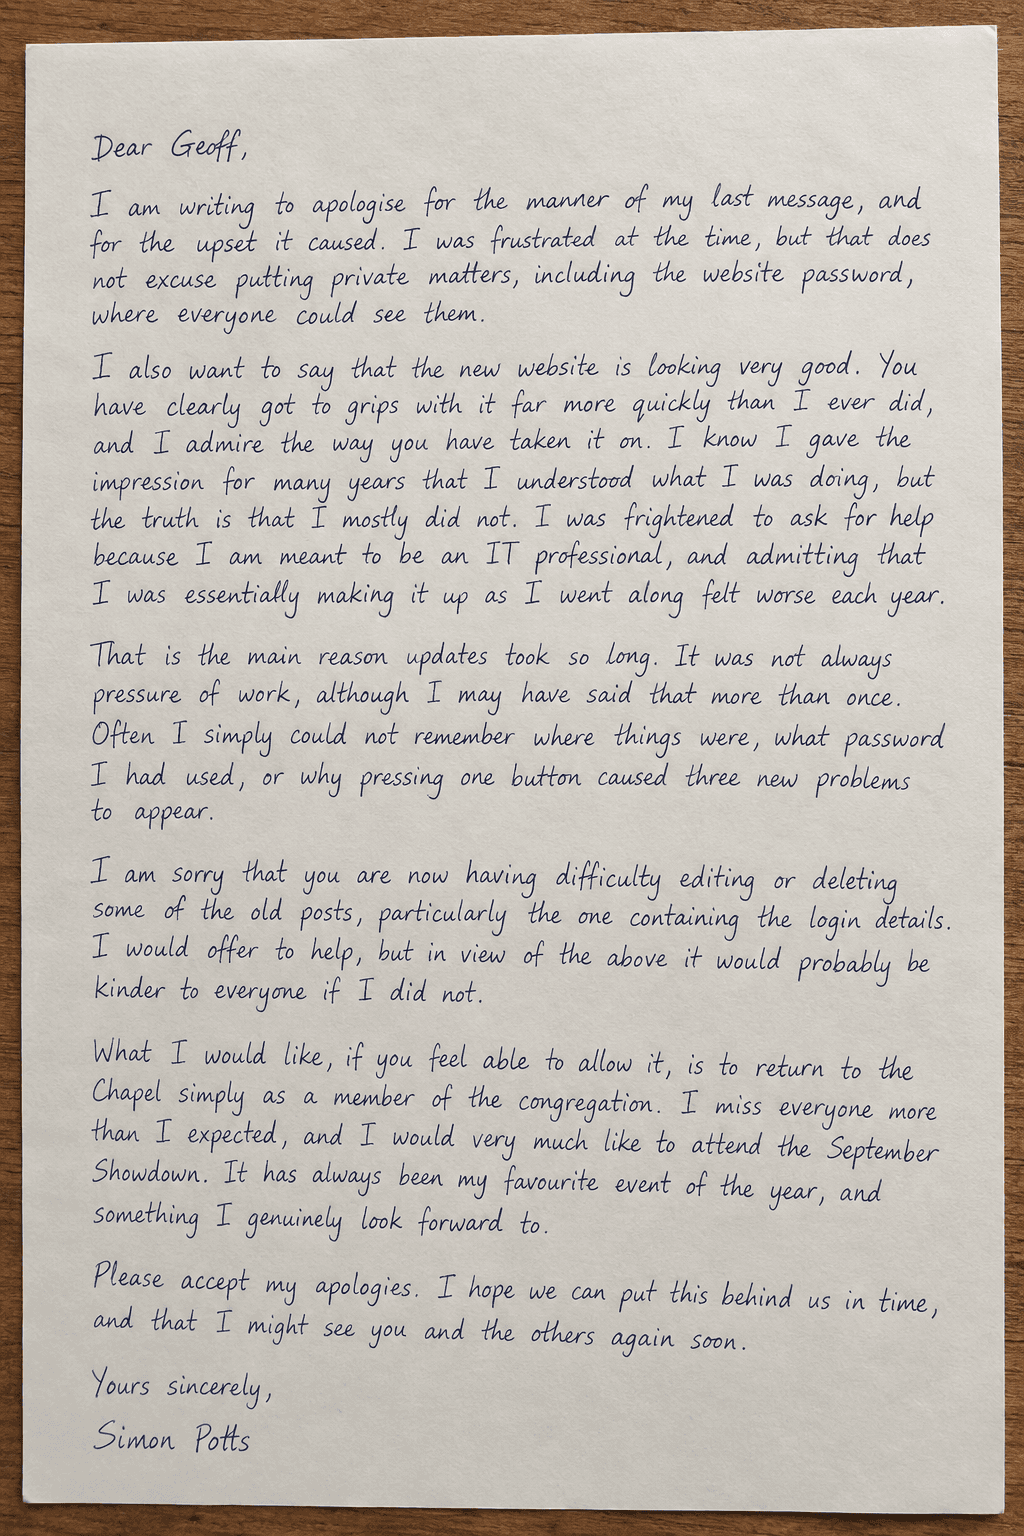 Dear Geoff,
I am writing to apologise for the manner of my last message, and
for the upset it caused. I was frustrated at the time, but that does
not excuse putting private matters, including the website password,
where everyone could see them.
I also want to say that the new website is looking very good. You
have clearly got to grips with it far more quickly than I ever did,
and I admire the way you have taken it on. I know I gave the
impression for many years that I understood what I was doing, but
the truth is that I mostly did not. I was frightened to ask for help
because I am meant to be an IT professional, and admitting that
I was essentially making it up as I went along felt worse each year.
That is the main reason updates took so long. It was not always
pressure of work, although I may have said that more than once.
Often I simply could not remember where things were, what password
I had used, or why pressing one button caused three new problems
to appear.
I am sorry that you are now having difficulty editing or deleting
some of the old posts, particularly the one containing the login details.
I would offer to help, but in view of the above it would probably be
kinder to everyone if I did not.
What I would like, if you feel able to allow it, is to return to the
Chapel simply as a member of the congregation. I miss everyone more
than I expected, and I would very much like to attend the September
Showdown. It has always been my favourite event of the year, and
something I genuinely look forward to.
Please accept my apologies. I hope we can put this behind us in time,
and that I might see you and the others again soon.
Yours sincerely,
Simon Potts